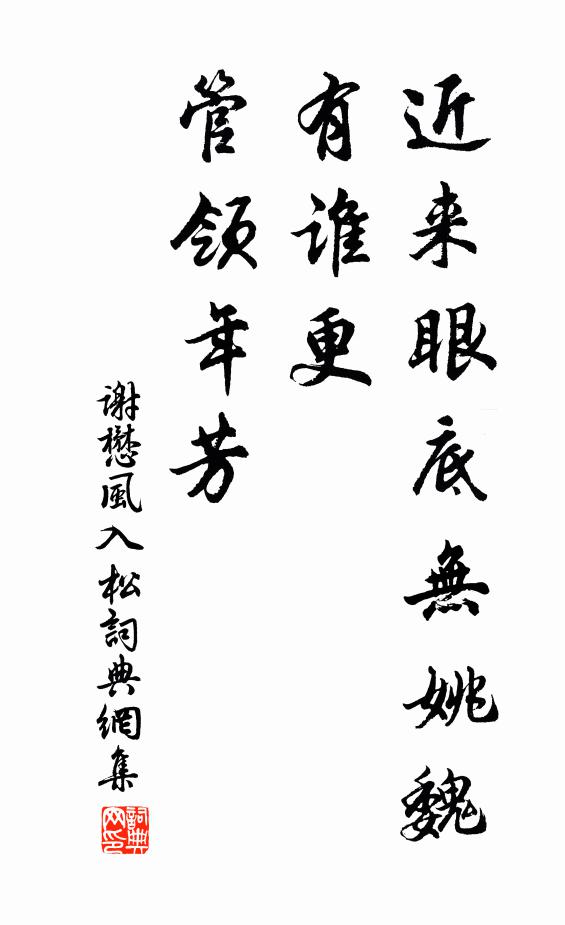 近来眼底無姚魏
有谁更
管领年芳
谢懋風入松詞典網集
詞典网印